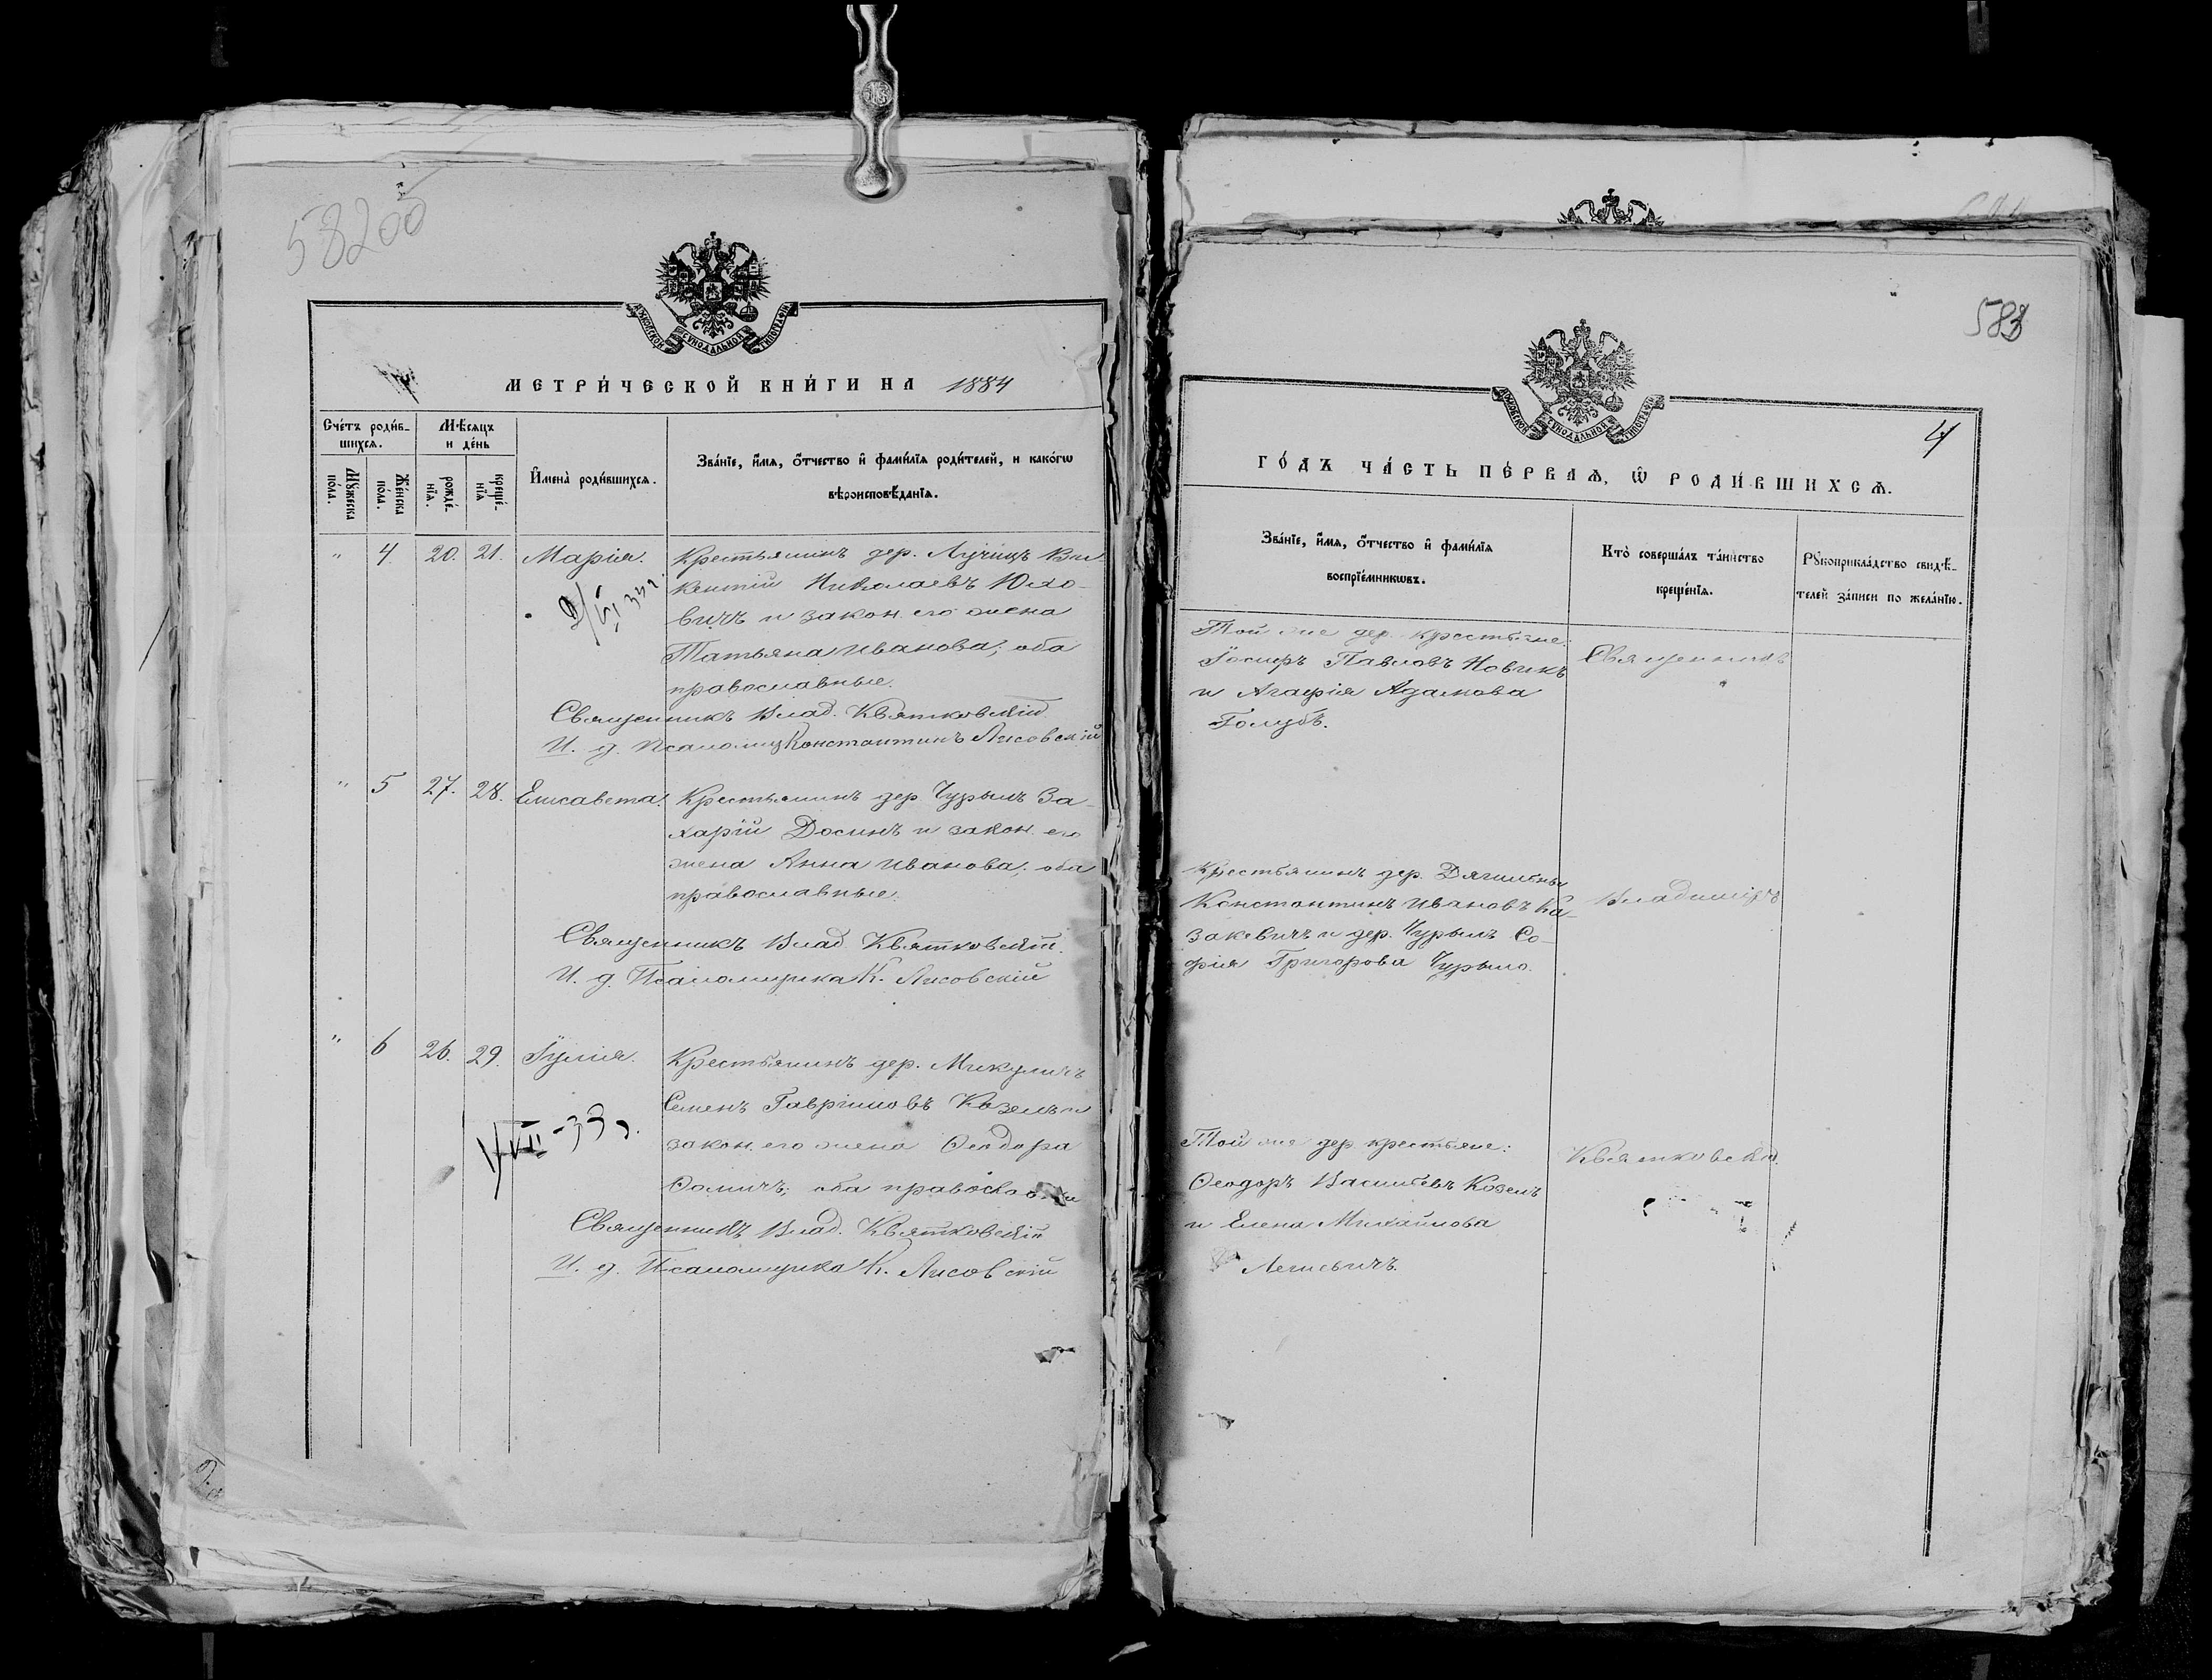 58200
МЕТРИ́ЧЕСКОЙ КНИ́ГИ НА 1884
Сче́тъ роди́в-
шихсѧ.
Мѣ́сяцъ
и де́нь
Мꙋ́жеска
по́ла.
Же́нска
по́ла.
рожде́-
нїѧ.
креще́-
нїѧ
И҆мена̀ роди́вшихсѧ.
Зва́нїе, и҆́мѧ, ѻ҆́тчество и҆ фами́лїѧ роди́телей, и како́гѡ
вѣроисповѣ́данїѧ.
" 4 20. 21. Марія. Крестьянинъ дер. Лучицъ Ви-
кентій Николаевъ Юхо-
вичъ и закон. его жена
Татьяна Иванова; оба
православные.
Священникъ Влад. Квятковскій
И. д. Псаломщ Константинъ Лисовскій
" 5 27. 28. Елисавета. Крестьянинъ дер. Чурылъ За-
харій Досинъ и закон. его
жена Анна Иванова; оба
православные.
Священникъ Влад. Квятковскій.
И. д. Псаломщика К. Лисовскій
" 6 26. 29. Іулія. Крестьянинъ дер. Микуличъ
Семенъ Гавріиловъ Козелъ и
закон. его жена Ѳеодора
Ѳомичъ; оба
Священникъ Влад. Квятковскій
И. д. Псаломщика К. Лисовскій
583
4
ГО́ДЪ ЧА́СТЬ ПЕ́РВАѦ, Ѡ҆ РОДИ́ВШИХСѦ.
Зва́нїе, и҆́мѧ, ѻ҆́тчество и҆ фами́лїѧ
воспрїе́мникѡвъ.
Кто̀ соверша́лъ та́инство
креще́нїѧ.
Рꙋкоприкла́дство свидѣ́-
телей за́писи по жела́нїю.
Той же дер. крестьяне:
Іосифъ Павловъ Новикъ
и Агафія Адамова
Голубъ.
Священникъ
Крестьянинъ дер.
Константинъ Ивановъ Ка-
закевичъ и дер. Чурылъ Со-
фія Григорова Чурыло.
Владиміръ
Той же дер. крестьяне:
Ѳеодоръ Васильевъ Козелъ
и Елена Михайлова
Квятковскій.